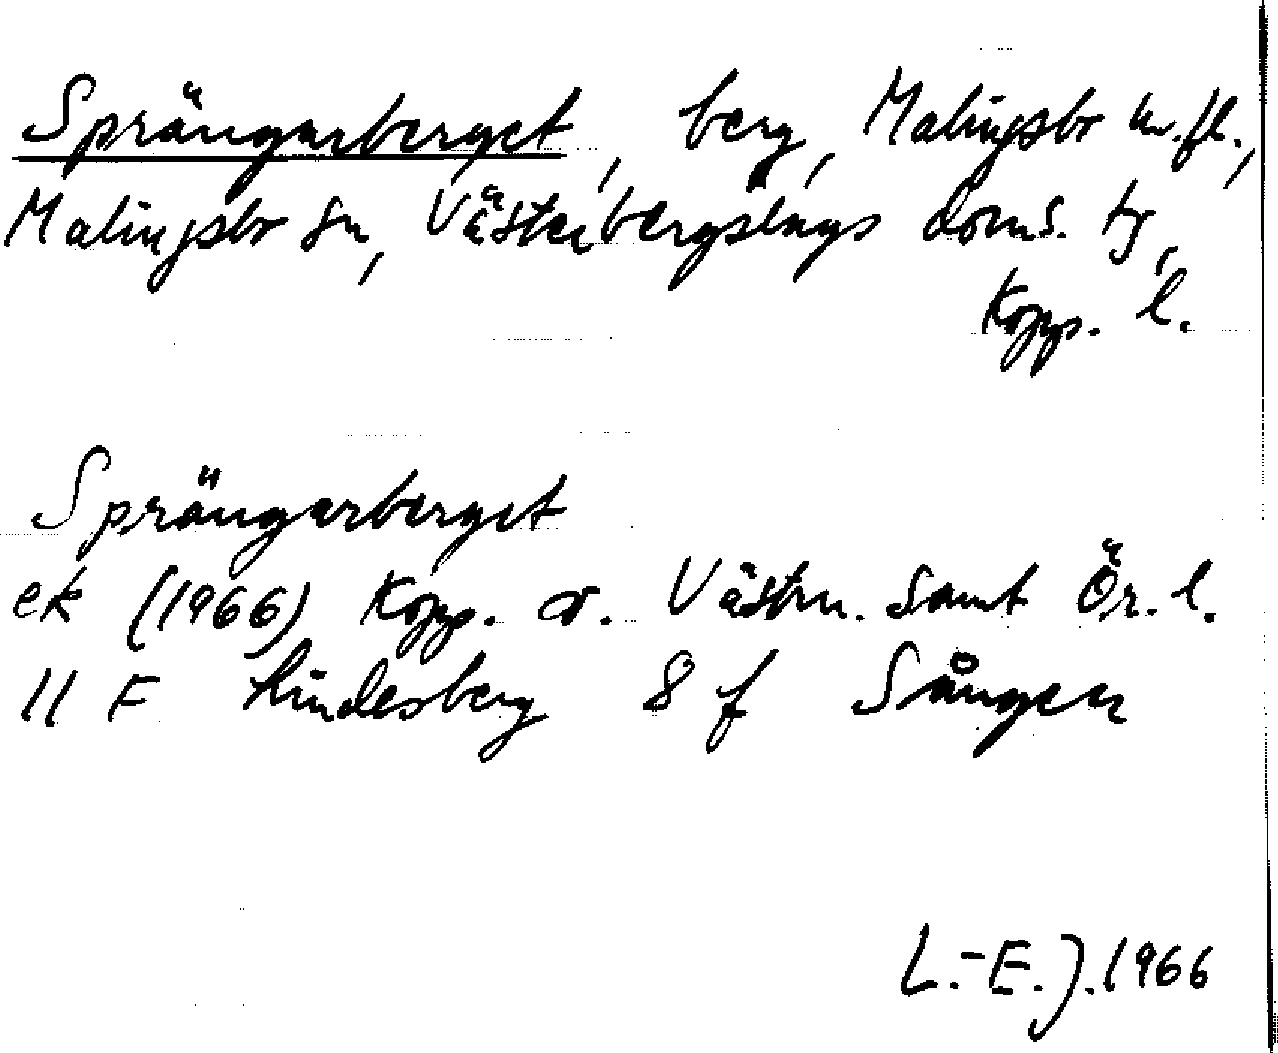 Sprängarberget, berg, Malingsbo kr.fl.,
Malingsbo sn, Västerbergslags doms. tr,
Kopp. l.
Sprängarberget
ek (1966) Kopp. o. Västm. samt Ör. l.
11 F Lindesberg 8 f Sången
L.-E. J. 1966